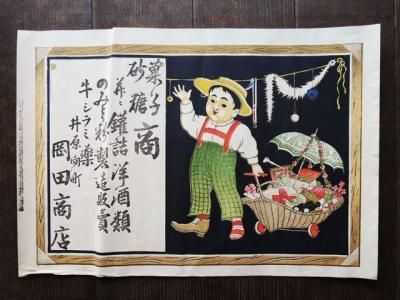 菓子
砂糖
商
并ニ鑵詰洋酒類
のみとり粉製造販賣
牛シラミ薬
井原町
岡田商店